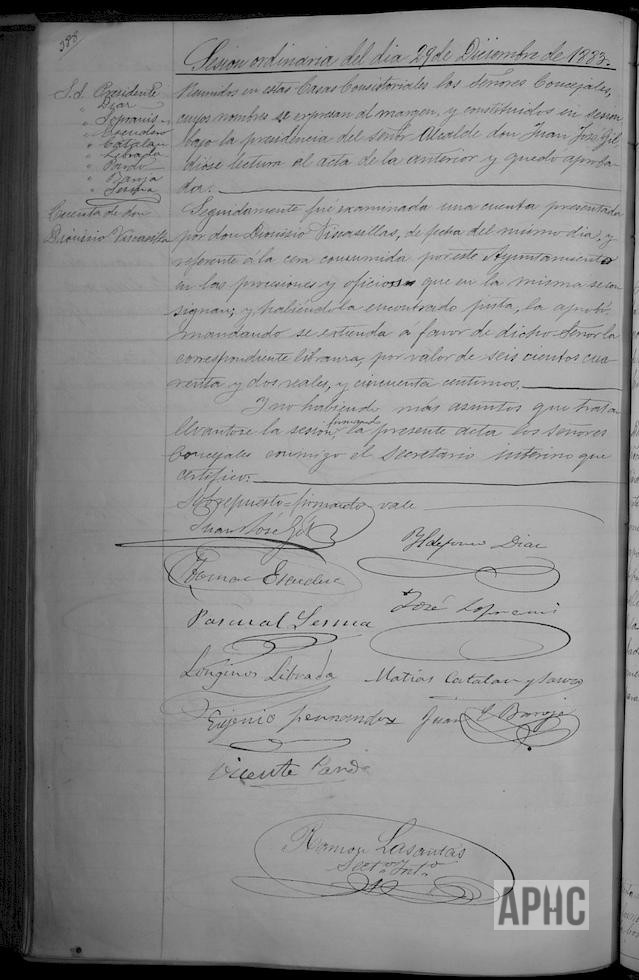 388
Sesion ordinaria del dia 29 de Diciembre de 1883.
S.S. Presidente
" Diaz
"
" Escudero
" Catalan
" Librada
" Pardo
" Baroja
" Lerma
Reunidos en estas Casas Consistoriales los Señores Concejales,
cuyos nombres se expresan al margen, y constituidos en sesion
bajo la presidencia del señor Alcalde don Juan José Gil
dióse lectura el acta de la anterior y quedo aproba-
da.
Cuenta de don
Dionisio Viscasillas
Seguidamente fué examinada una cuenta presentada
por don Dionisio Viscasillas, de fecha del mismo dia, y
referente á la cera consumida por este Ayuntamiento
en las procesiones y oficios que en la misma se con
signan; y, habiéndola encontrado justa, la aprobó
mandando se extienda a favor de dicho señor la
correspondiente libranza, por valor de seis cientos cua
renta y dos reales, y cincuenta centimos.
Y no habiendo más asuntos que tratar
levantose la sesion, firmando la presente acta los señores
Concejales conmigo el Secretario interino que
certifico.
Sobrepuesto=firmando vale
Juan José Gil
Yldefonso Diaz
Tomas Escudero
José
Pascual Lerma
Longinos Librada
Matias Catalan y
Eugenio Fernandez
Juan Baroja
Vicente Pardo
Ramon Lasantas
Sect.º Int.º
APHC